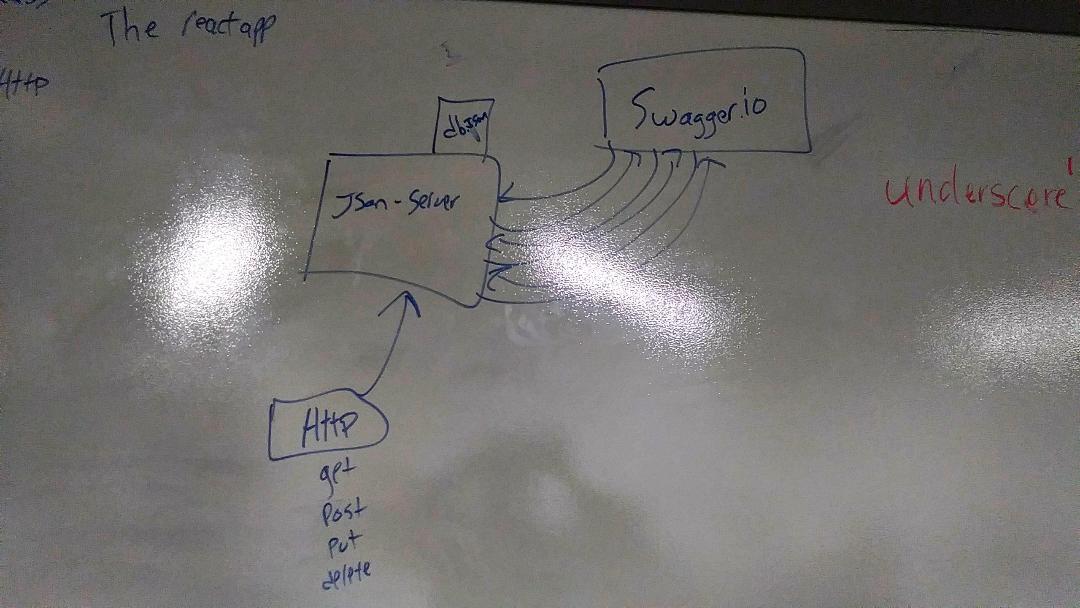 The react app
HTTP
Swagger.io
db.json
Json-Server
underscore
HTTP
get
post
put
delete